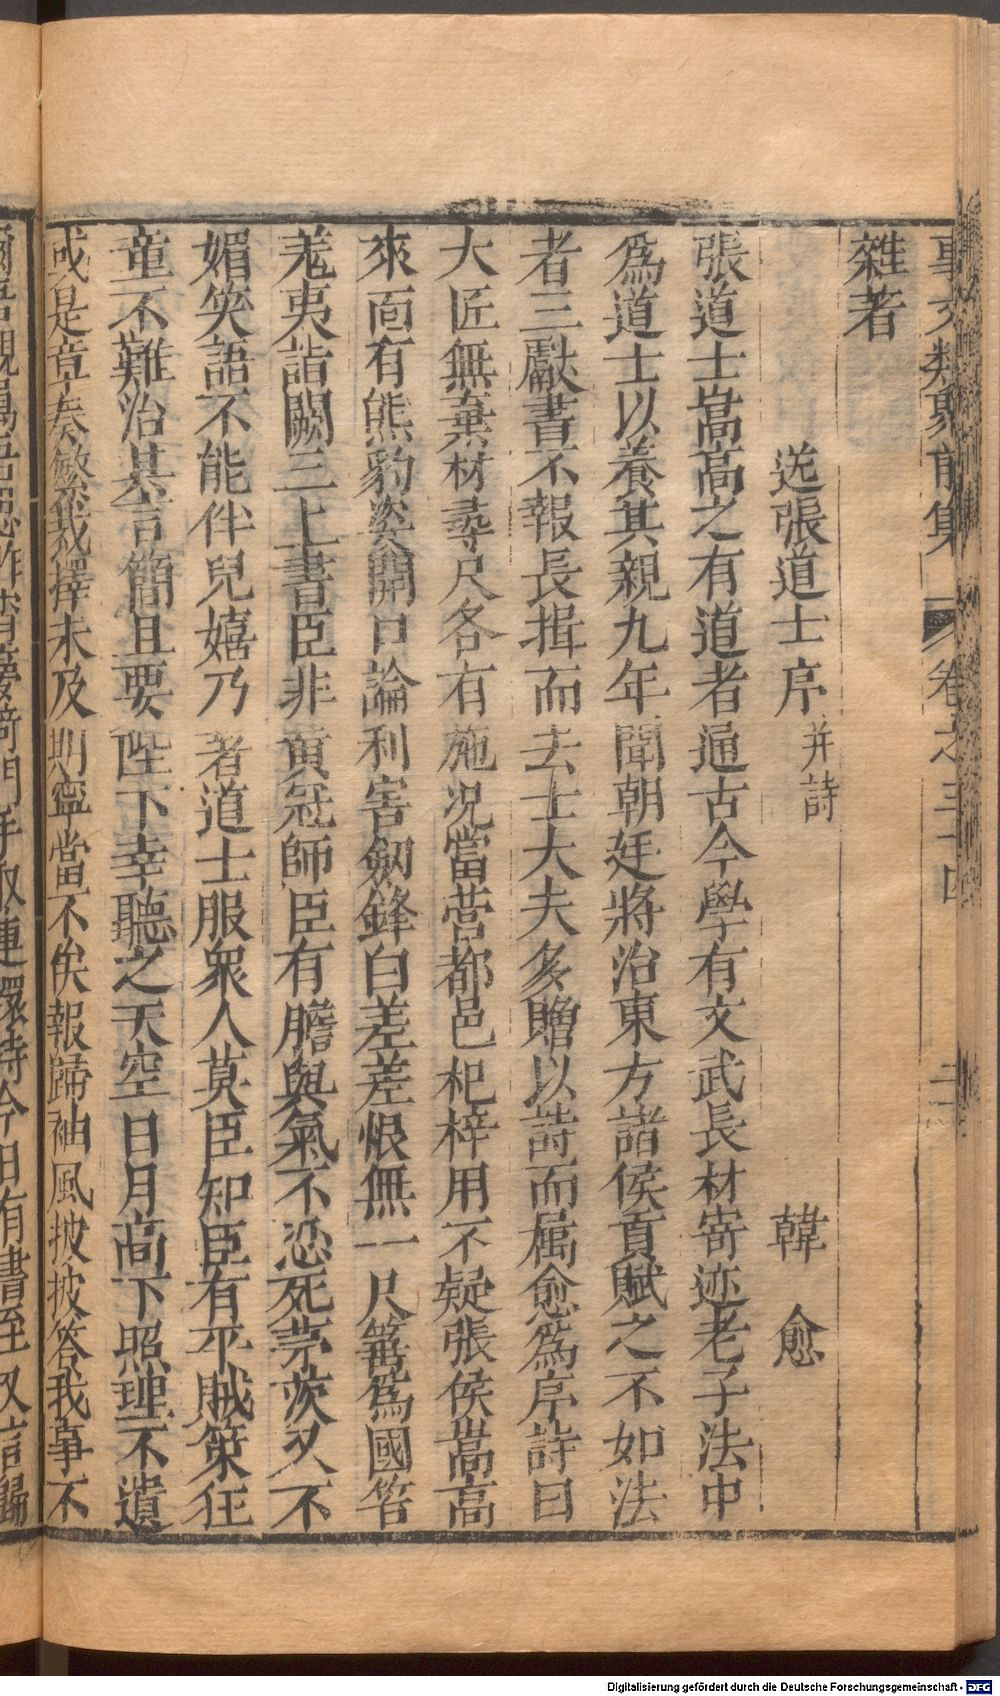 事文類聚前集 卷之三十四 二
雜著
送張道士序 并詩 韓愈
張道士嵩高之有道者通古今學有文武長材寄迹老子法中
爲道士以養其親九年聞朝廷將治東方諸侯貢賦之不如法
者三獻書不報長揖而去士大夫多贈以詩而屬愈爲序詩曰
大匠無棄材尋尺各有施况當營都邑杞梓用不疑張侯嵩高
來面有熊豹姿開口論利害劒鋒白差差恨無一尺箠爲國笞
羌夷詣闕三上書臣非黃冠師臣有膽與氣不忍死茅茨又不
媚笑語不能伴兒嬉乃著道士服衆人莫臣知臣有平賊策狂
童不難治其言簡且要陛下幸聽之天空日月高下照理不遺
或是章奏繁裁擇未及期寧當不俟報歸袖風披披答我事不
爾吾親屬吾思昨宵夢倚門手取連環持今日有書至又言歸
Digitalisierung gefördert durch die Deutsche Forschungsgemeinschaft - DFG